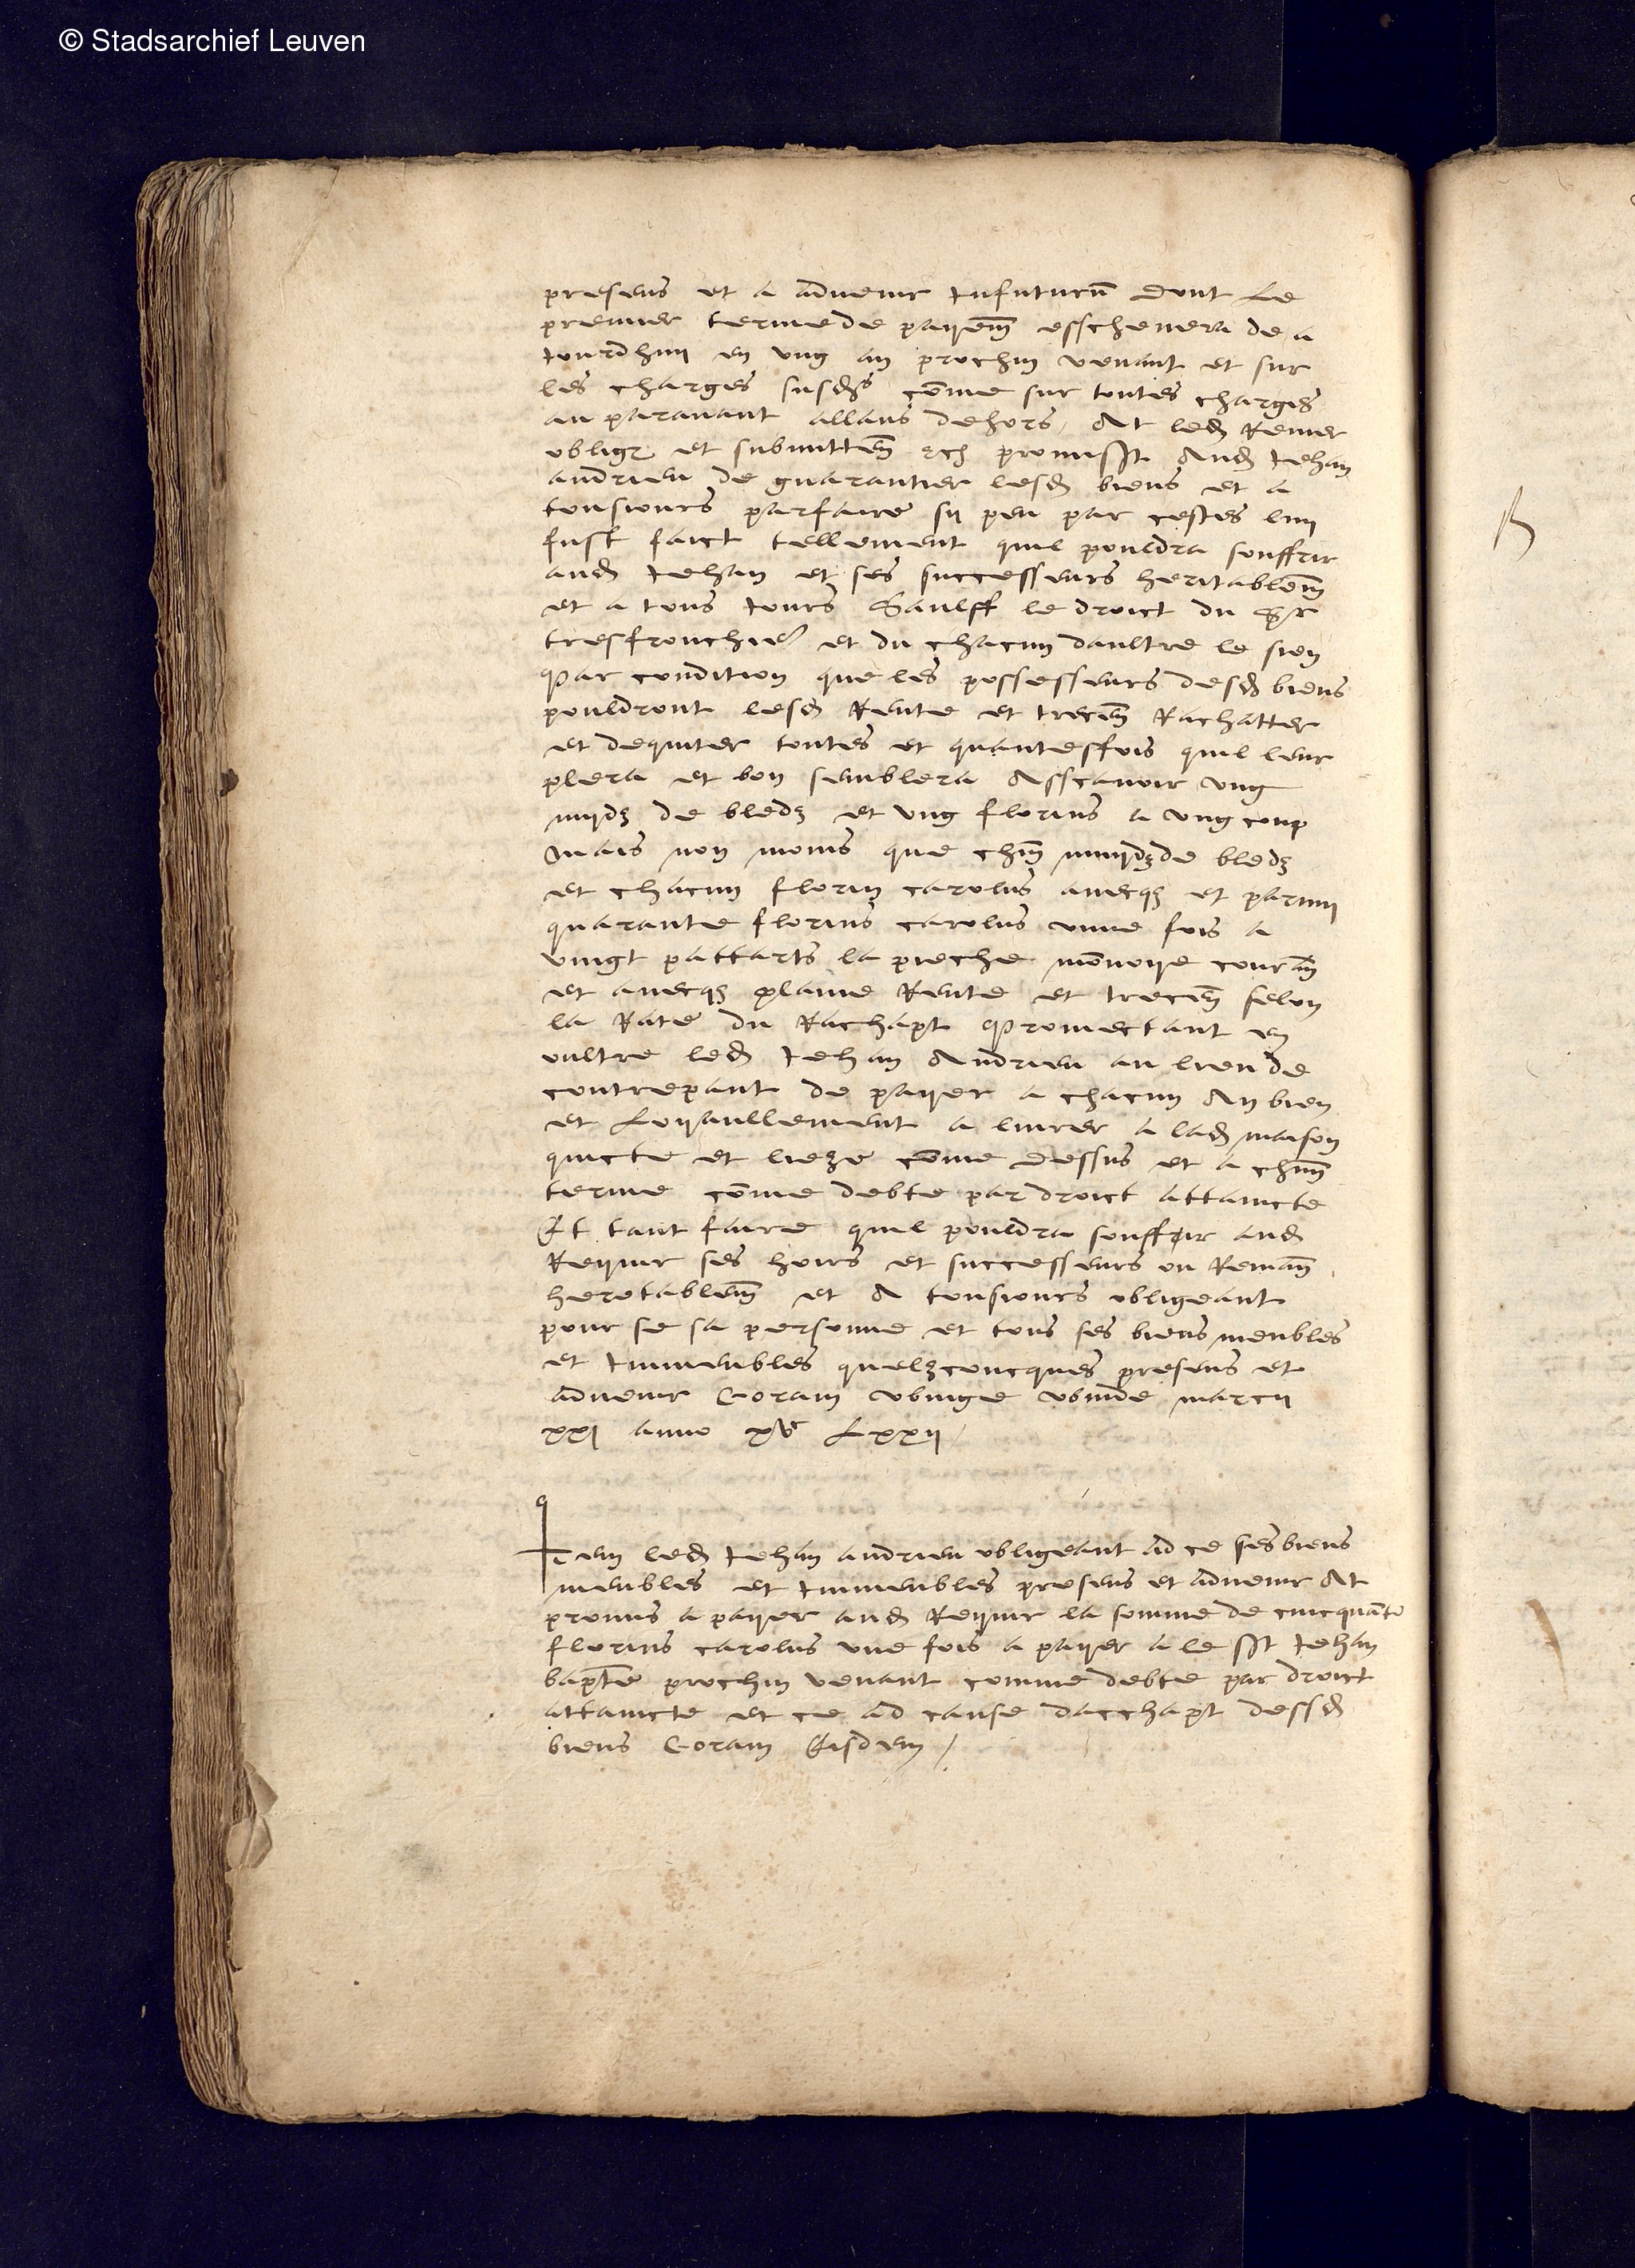 © Stadsarchief Leuven
presens et a advenir Infuturū dont le
premier terme de payem̄ esschevera de a
Jourdhuy en ung an prochin venant et sur
les charges susds come sur toutes charges
au paravant allans dehors At led Renier
oblig et submittem̄ rch promist Aud Jehan
andrieu de guarantier lesd biens et a
tousiours parfaire sy peu par cestes luy
fust faict tellement quil pouldra souffrir
aud Jehan et ses successeurs heritablem̄
et a tous Jours Saulff le droict du sr
tresfonchier et du chacun daultre le sien
Par condition que les possesseurs desd biens
pouldront lesd Rente et trecem̄ Rachatter
et dequiter toutes et quantesfois quil leur
plera et bon semblera Asscavoir ung
muydz de bledz et ung florins a ung coup
Mais non moins que chm̄ muydz de bledz
et chacun florin carolus avecqz et parmy
quarante florins carolus unne fois a
vingt pattarts la pieche monoye couran̄
et avecqz plaine Rente et trecem̄ selon
la Rate du Rachapt Promectant en
oultre led Jehan Andrieu au lieu de
contrepant de payer a chacun An bien
et Loyaullement a livrer a lad maison
quicte et lieze come dessus et a chūn
terme come debte par droict attaincte
Et tant faire quil pouldra souffrir aud
Reynir ses hoirs et successeurs ou Remān
heretablem̄ et A tousiours obligeant
pour se sa personne et tous ses biens meubles
et Immeubles quelzconcques presens et
advenir Coram ubinge ubinde marcii
xxj anno xvc Lxxij
Item led Jehan andrieu obligeant ad ce ses biens
meubles et Immeubles presens et advenir At
promis a payer aud Reynir la somme de cincquāte
florins carolus une fois a payer a le st Jehan
bapte prochin venant comme debte par droict
attaincte et ce ad cause dacchapt dessd
biens Coram Eisdem